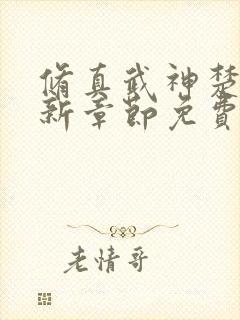 脩真武神楚
新章節免費
老情哥